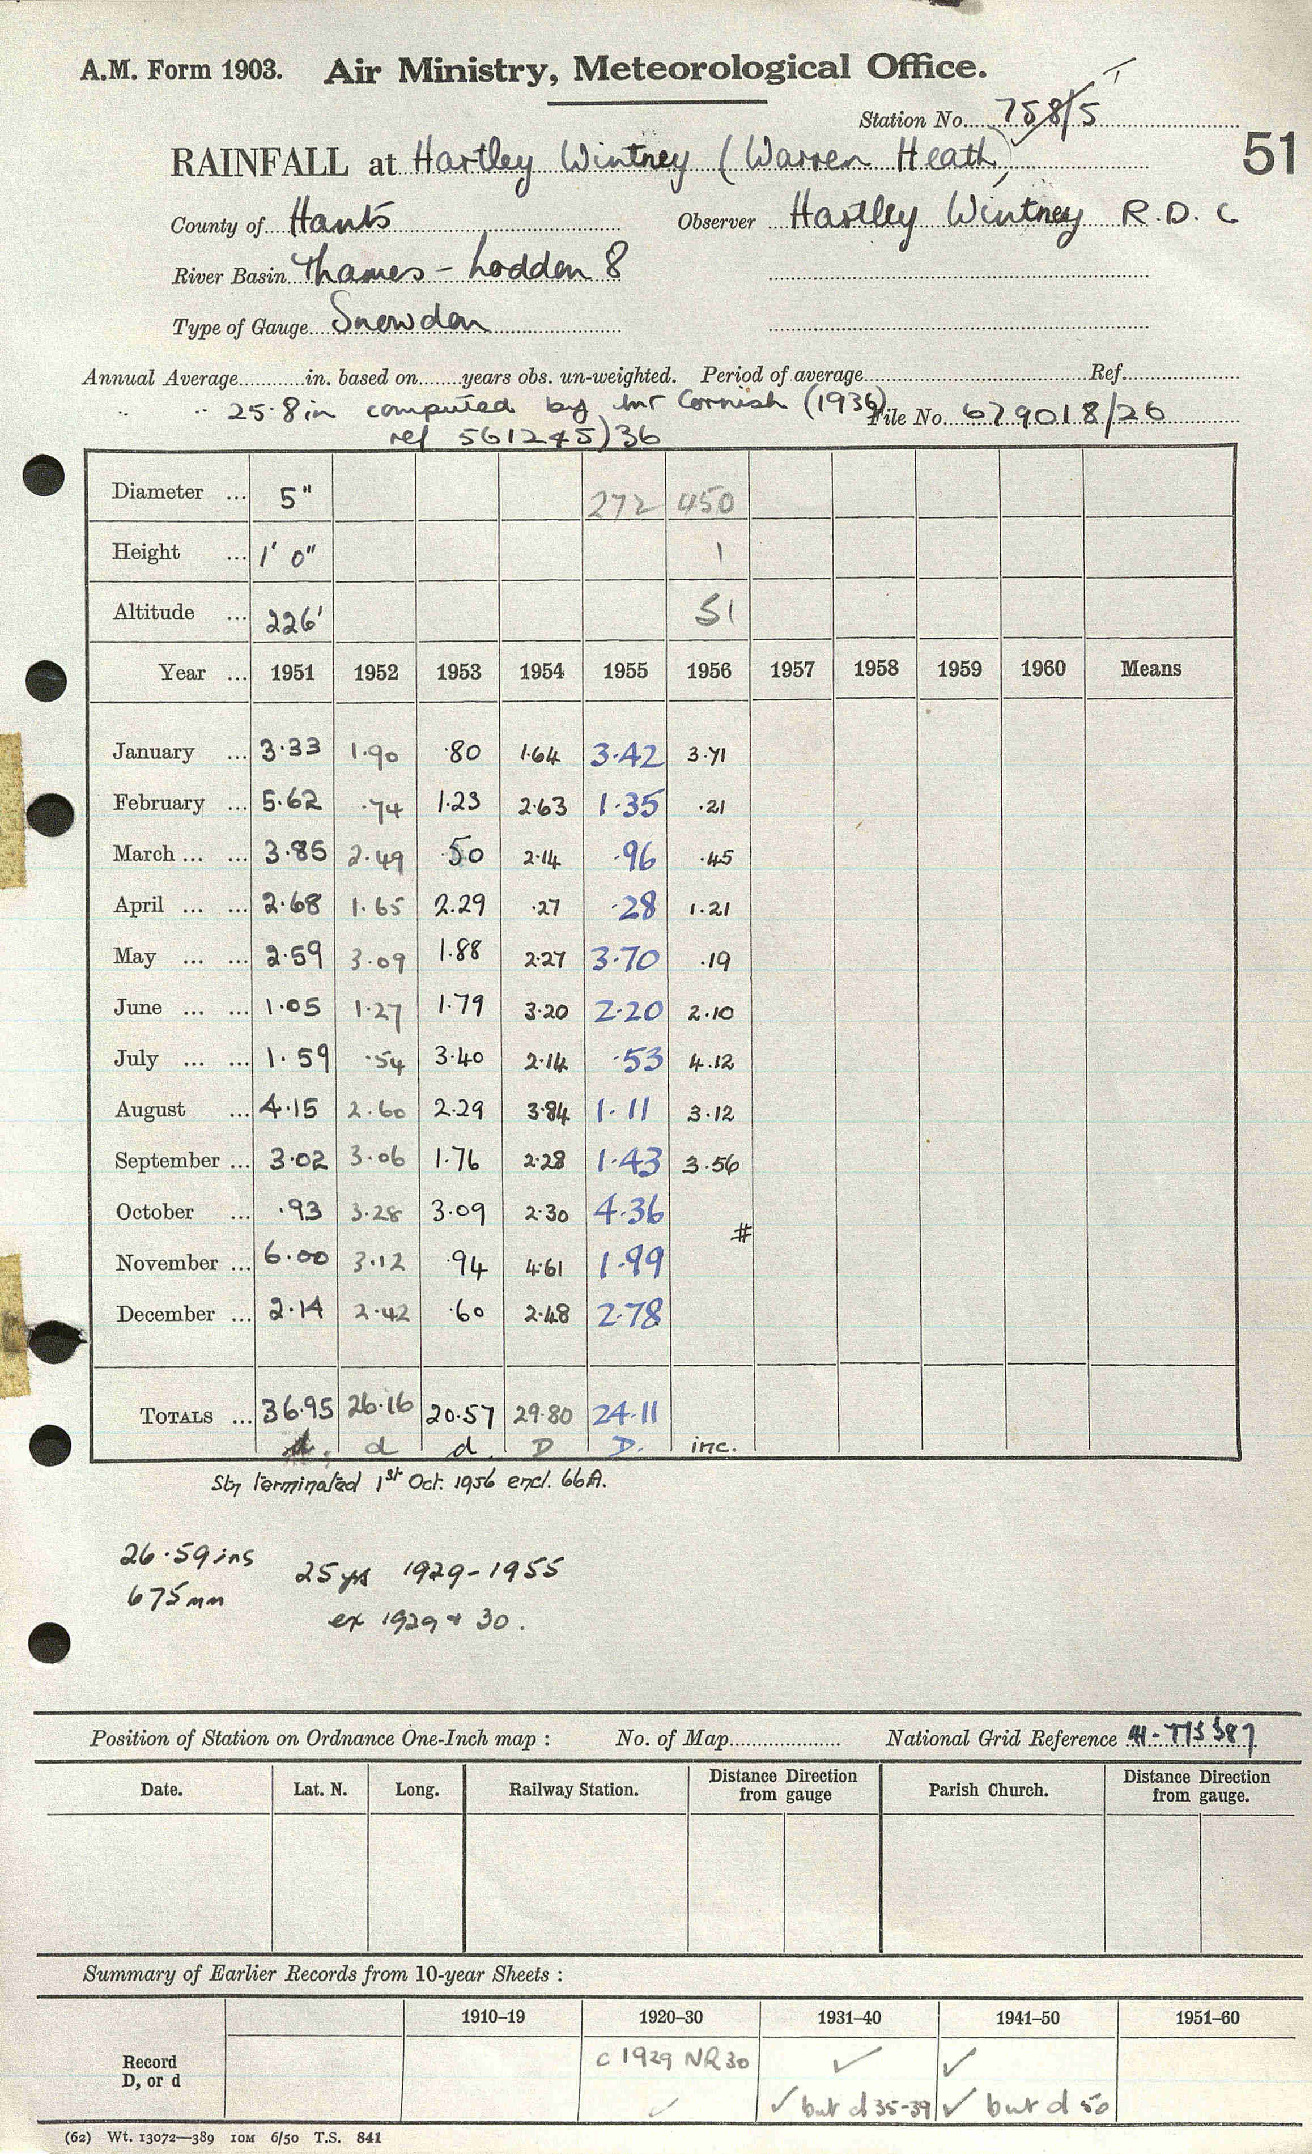 A.M. Form 1903. Air Ministry, Meteorological Office.
Station No. 758/5 T
RAINFALL at Hartley Wintney (Warren Heath)
51
County of Hants Observer Hartley Wintney R.D.C
River Basin Thames - Loddon 8
Type of Gauge Snowdon
Annual Average in. based on years obs. un-weighted. Period of average Ref.
" " 25.8in computed by Mr Cornish (1936) File No. 679018/26
ref 561245/36
Diameter ... 5" 272 450
Height ... 1' 0" 1
Altitude ... 226' 51
Year ... 1951 1952 1953 1954 1955 1956 1957 1958 1959 1960 Means
January ... 3.33 1.90 .80 1.64 3.42 3.71
February ... 5.62 .74 1.23 2.63 1.35 .21
March ... ... 3.85 2.49 .50 2.14 .96 .45
April ... ... 2.68 1.65 2.29 .27 .28 1.21
May ... ... 2.59 3.09 1.88 2.27 3.70 .19
June ... ... 1.05 1.27 1.79 3.20 2.20 2.10
July ... ... 1.59 .54 3.40 2.14 .53 4.12
August ... 4.15 2.60 2.29 3.84 1.11 3.12
September ... 3.02 3.06 1.76 2.28 1.43 3.56
October ... .93 3.28 3.09 2.30 4.36
#
November ... 6.00 3.12 .94 4.61 1.99
December ... 2.14 2.42 .60 2.48 2.78
TOTALS ... 36.95 26.16 20.57 29.80 24.11
d. d d D D. inc.
Stn terminated 1st Oct. 1956 encl. 66A.
26.59 ins 25 yrs 1929-1955
675mm ex 1929 + 30.
Position of Station on Ordnance One-Inch map : No. of Map National Grid Reference 41-775587
Date. Lat. N. Long. Railway Station. Distance from gauge Direction Parish Church. Distance from gauge. Direction
Summary of Earlier Records from 10-year Sheets :
1910–19 1920–30 1931–40 1941–50 1951–60
Record c 1929 NR 30 ✓ ✓
D, or d ✓ ✓ but d 35-39 ✓ but d 50
(62) Wt. 13072—389 10M 6/50 T.S. 841